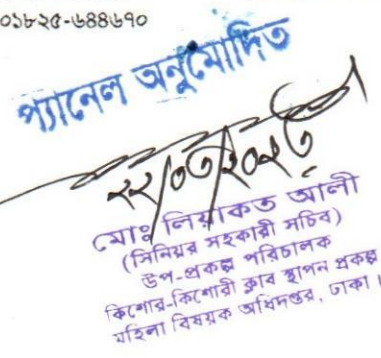 ০১৮২৫-৬৪৪৬৭০
প্যানেল অনুমোদিত
মোঃ লিয়াকত আলী
(সিনিয়র সহকারী সচিব)
উপ-প্রকল্প পরিচালক
কিশোর-কিশোরী ক্লাব স্থাপন প্রকল্প
মহিলা বিষয়ক অধিদপ্তর, ঢাকা।